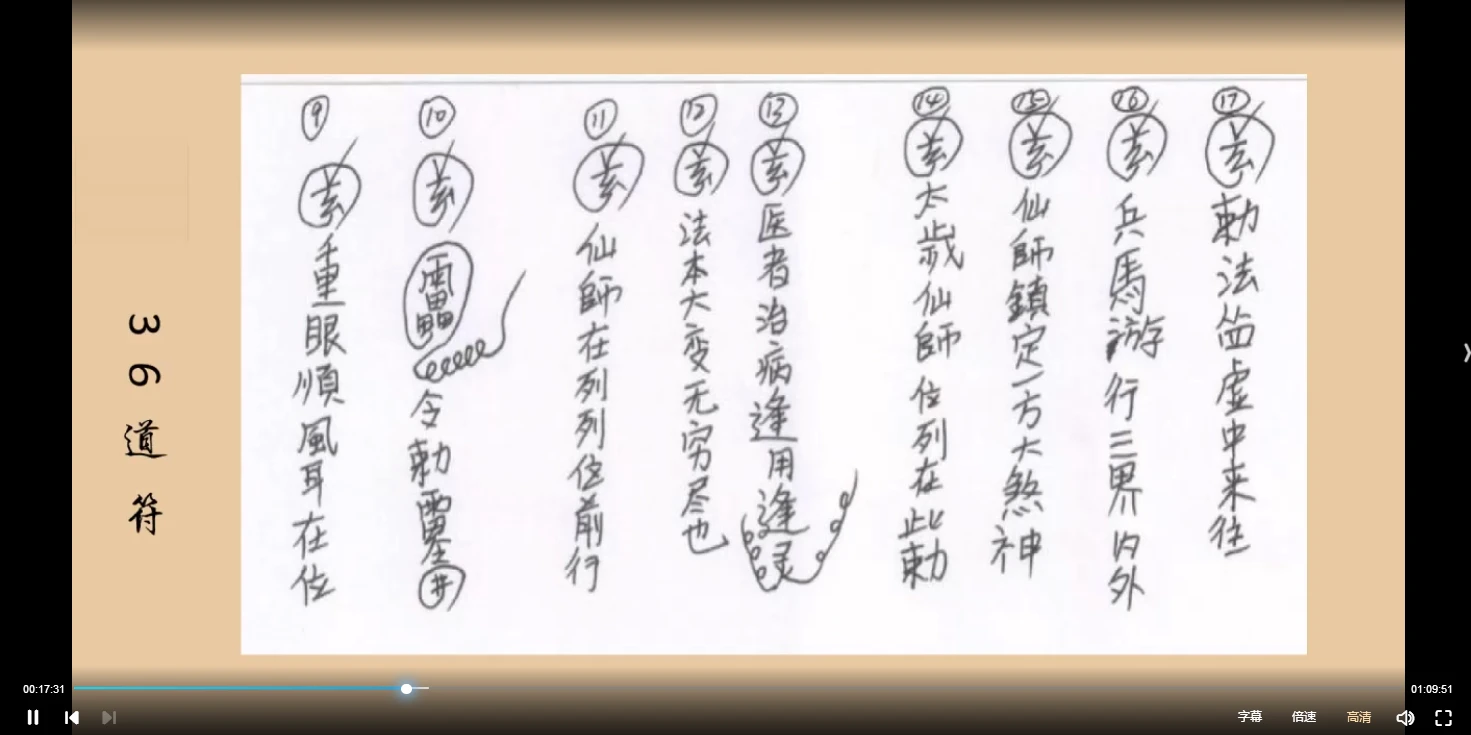 36道符
⑨ 重眼順風耳在位
⑩ 雷 令勅
⑪ 仙師在列列位前行
⑫ 法本大变无穷尽也
⑬ 医者治病逢用逢灵
⑭ 太歲仙師位列在此勅
⑮ 仙師鎮定一方大煞神
⑯ 兵馬游行三界内外
⑰ 勅法 虚中来往
00:17:31
01:09:51
字幕 倍速 高清